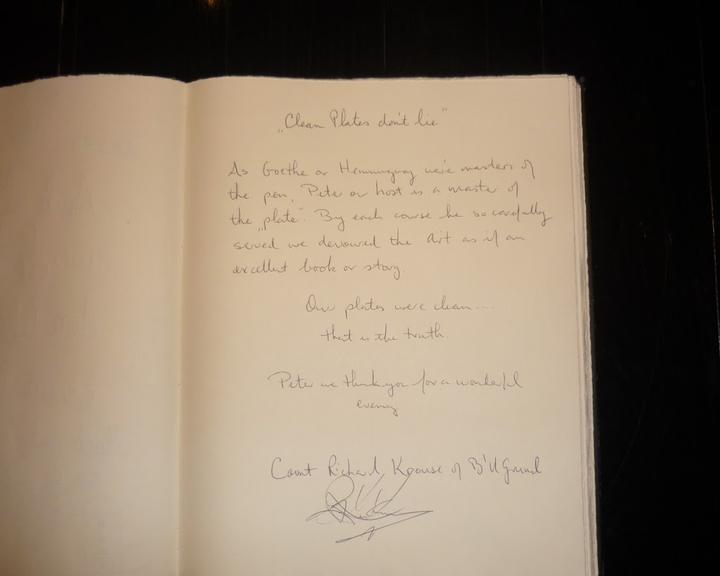 „Clean Plates don't lie"
As Goethe or Hemmingway were masters of
the pen, Peter our host is a master of
the „plate". By each course he so carefully
served we devoured the Art as if an
excellent book or story.
Our plates were clean....
that is the truth
Peter we thank you for a wonderful
evening
Count Richard Krouse of